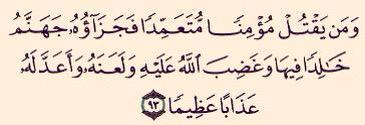 وَمَن يَقْتُلْ مُؤْمِنًا مُّتَعَمِّدًا فَجَزَآؤُهُۥ جَهَنَّمُ
خَٰلِدًا فِيهَا وَغَضِبَ ٱللَّهُ عَلَيْهِ وَلَعَنَهُۥ وَأَعَدَّ لَهُۥ
عَذَابًا عَظِيمًا ٩٣